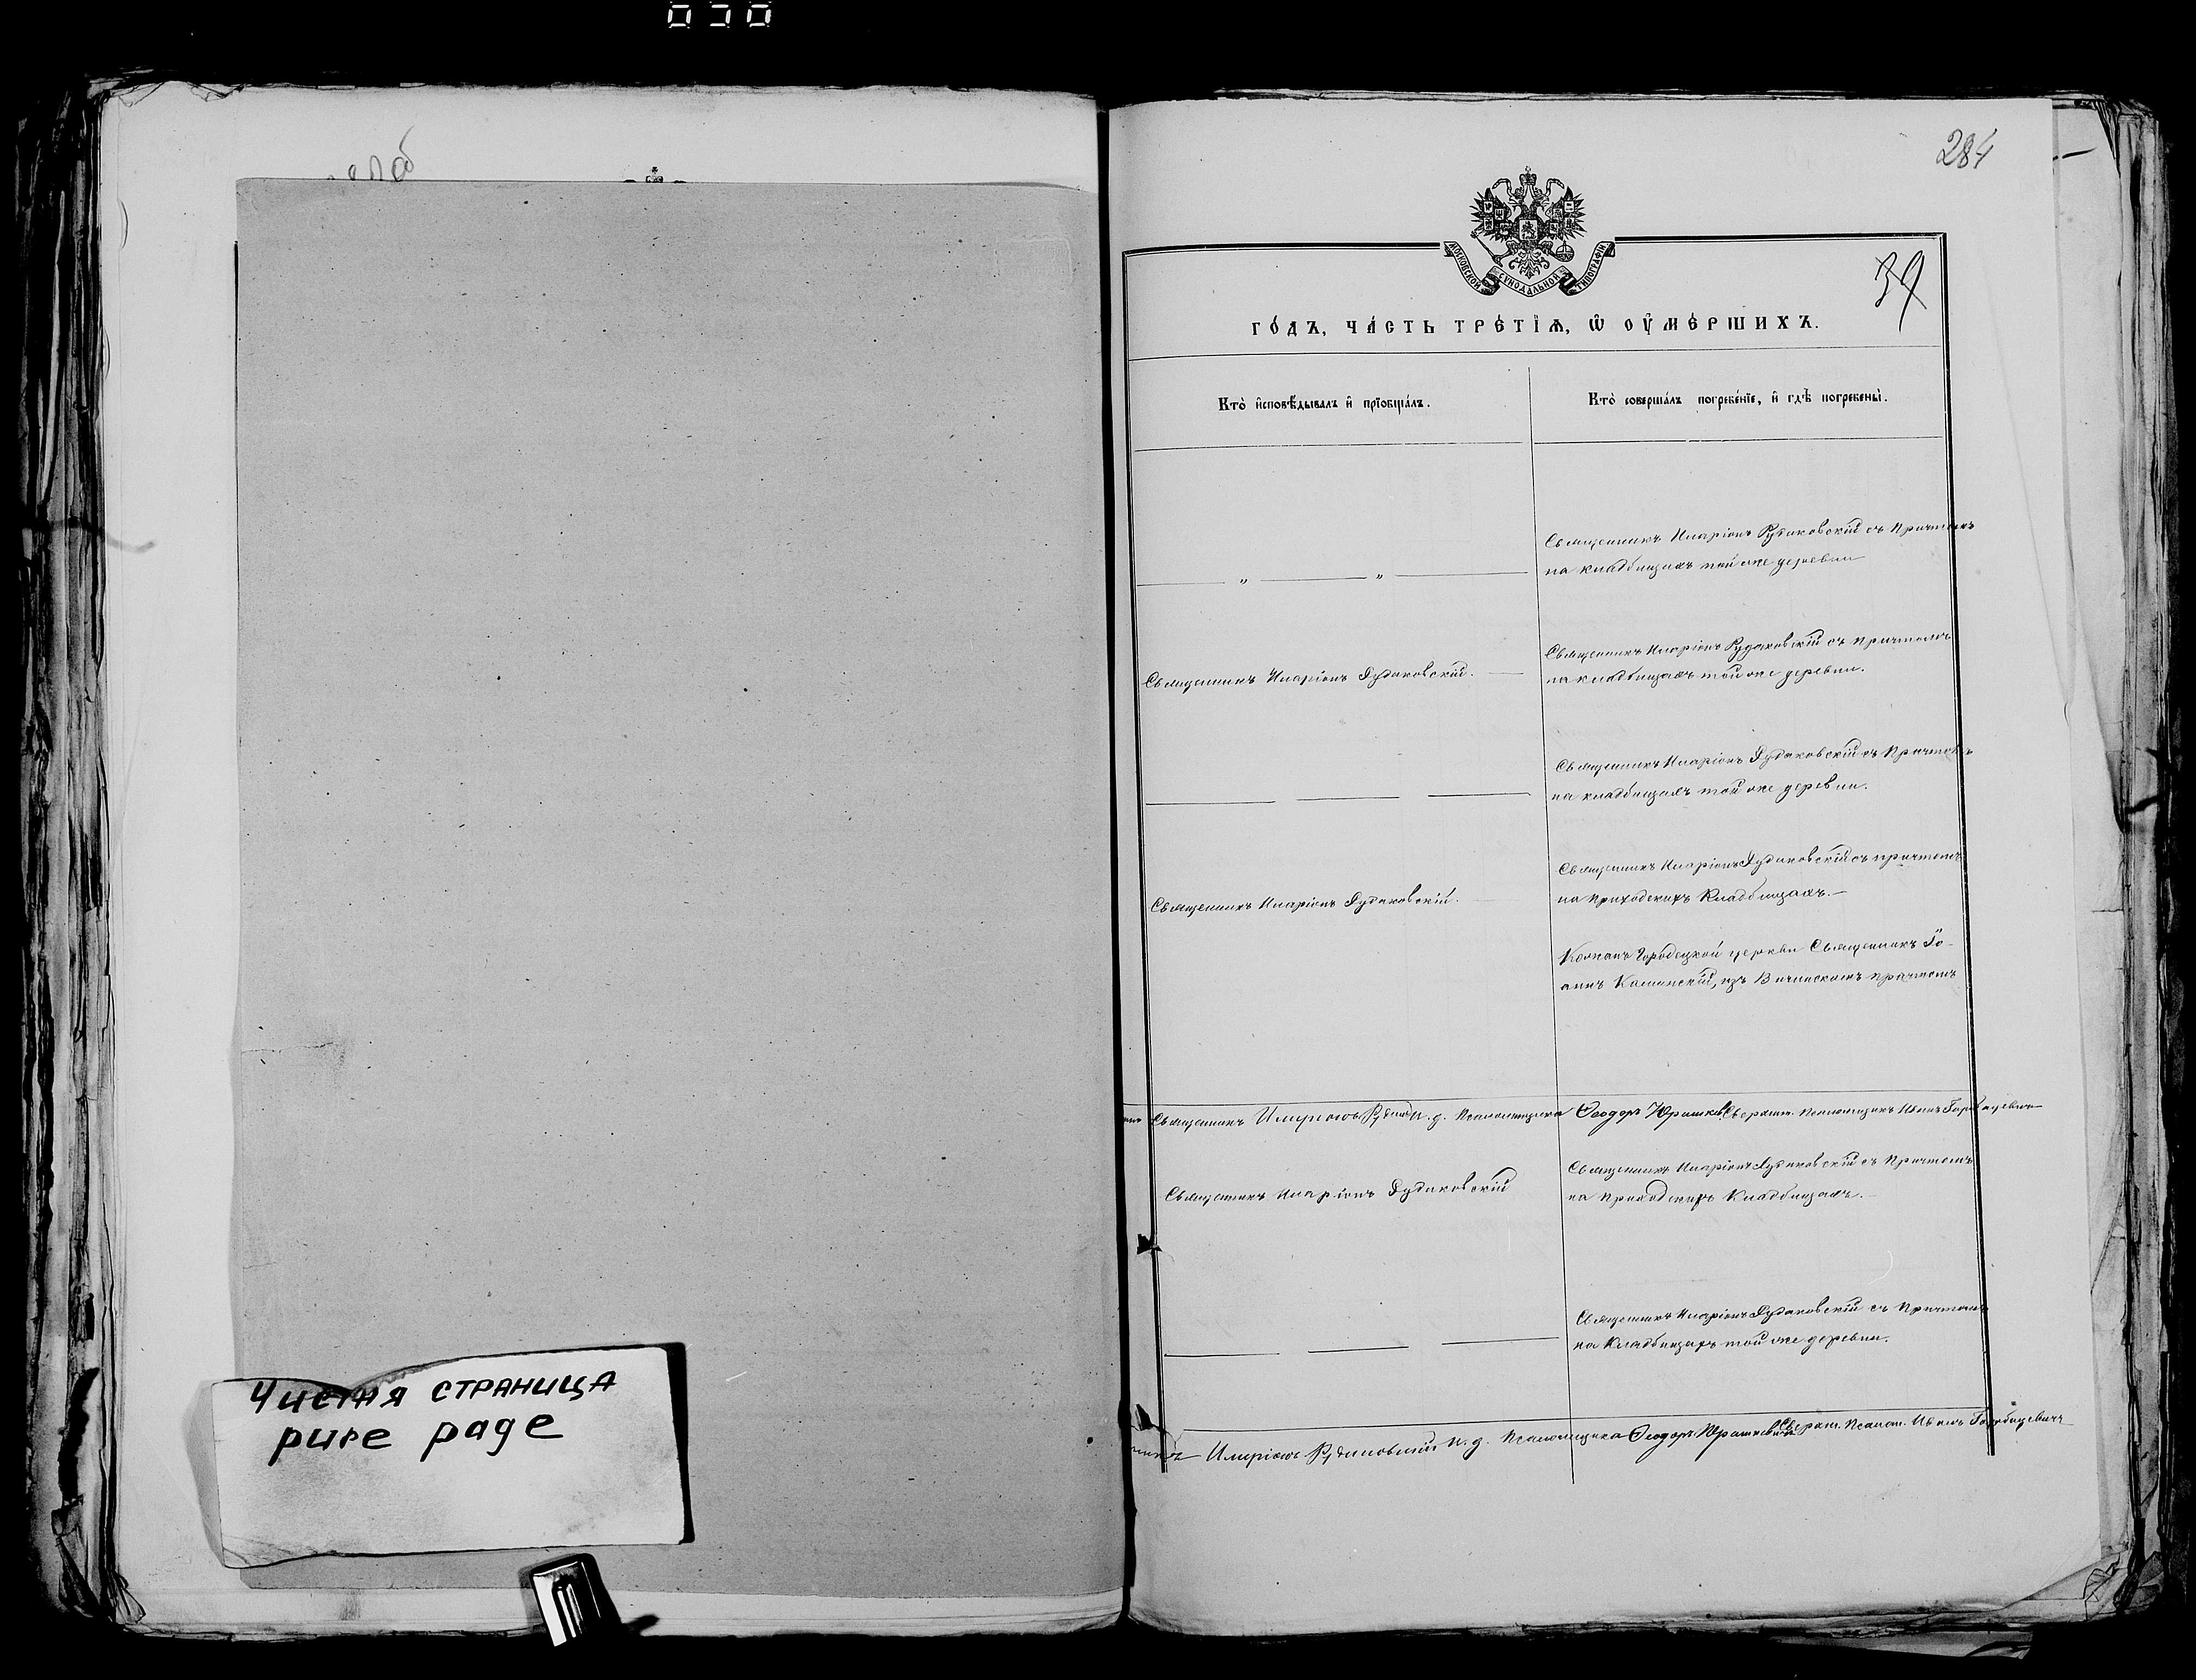 284
39
МОСКОВСКОЙ СѴНОДАЛЬНОЙ ТИПОГРАФІИ
ГО́ДЪ, ЧА́СТЬ ТРЕ́ТІѦ, Ѡ҆ ОУ҆МЕ́РШИХЪ.
Кто̀ и҆сповѣ́дывалъ и҆ прїобща́лъ.
Кто̀ соверша́лъ погребе́нїе, и҆ гдѣ̀ погребены̀.
Священникъ Иларіонъ Рудаковскій съ причтомъ
" "
на кладбищахъ той же деревни
Священникъ Иларіонъ Рудаковскій съ причтомъ
Священникъ Иларіонъ Рудаковскій.
на кладбищахъ той же деревни.
Священникъ Иларіонъ Рудаковскій съ причтомъ
на кладбищахъ той же деревни.
Священникъ Иларіонъ Рудаковскій съ причтомъ
Священникъ Иларіонъ Рудаковскій.
на приходскихъ кладбищахъ.—
Городецкой церкви Священникъ Іо-
аннъ Каминскій, съ причтомъ
Священникъ Иларіонъ и. д. Псаломщика Ѳеодоръ Псаломщикъ Иванъ
Священникъ Иларіонъ Рудаковскій съ причтомъ
Священникъ Иларіонъ Рудаковскій
на приходскихъ кладбищахъ.
Священникъ Иларіонъ Рудаковскій съ причтомъ
на кладбищахъ той же деревни.
Иларіонъ Рудаковскій и. д. Псаломщика Ѳеодоръ Юрашкевичъ Псалом. Иванъ
Чистая страница
pure page